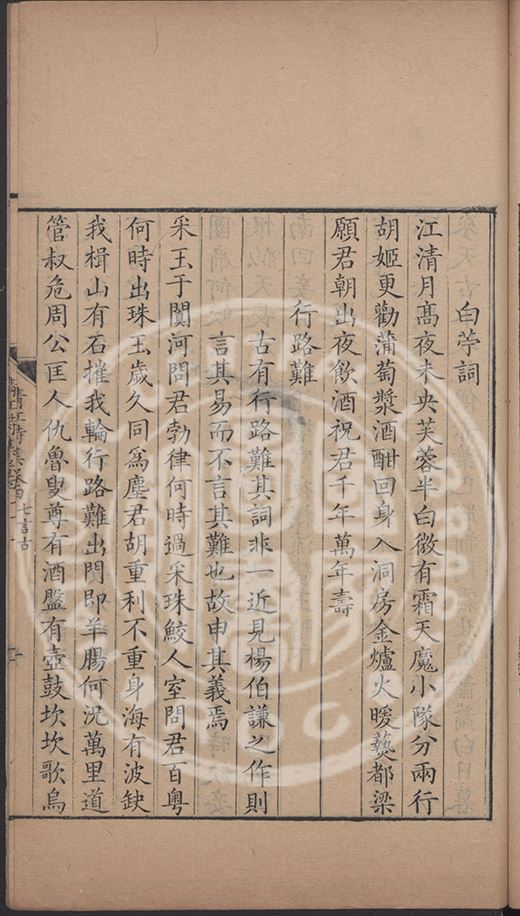 白苧詞
江清月髙夜未央芙蓉半白微有霜天魔小隊分兩行
胡姬更勸蒲萄漿酒酣回身入洞房金爐火暖爇都梁
願君朝出夜飲酒祝君千年萬年壽
行路難
古有行路難其詞非一近見楊伯謙之作則
言其易而不言其難也故申其義焉
采玉于闐河問君勃律何時過采珠鮫人室問君百粤
何時出珠玉歲久同爲塵君胡重利不重身海有波缺
我楫山有石摧我輪行路難出門即羊腸何況萬里道
管叔危周公匡人仇魯叟尊有酒盤有壺鼓坎坎歌烏
七言古